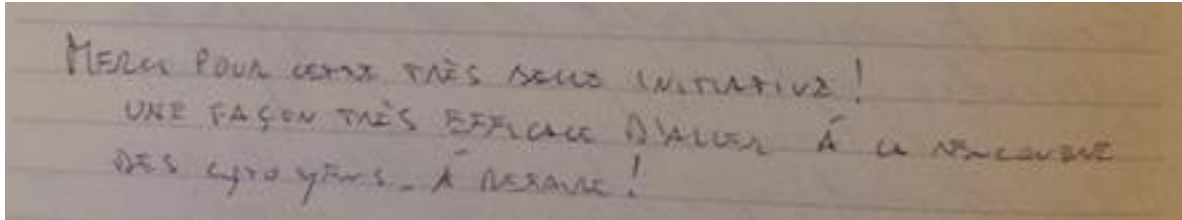 MERCI POUR CETTE TRÈS BELLE INITIATIVE !
UNE FAÇON TRÈS EFFICACE D'ALLER À LA RENCONTRE
DES CITOYENS - À REFAIRE !